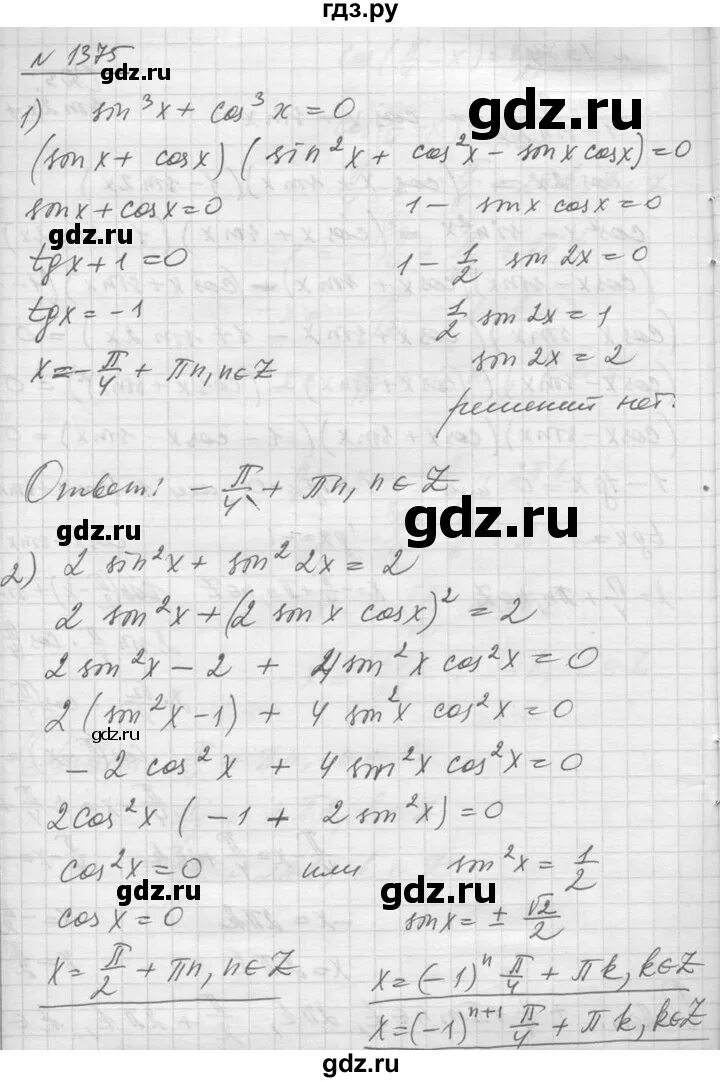 гдз.ру
N 1375
gdz.ru
1) sin³x + cos³x = 0
(sin x + cos x) ( sin²x + cos²x – sin x cos x) = 0
sin x + cos x = 0 1 – sin x cos x = 0
gdz.ru
tg x + 1 = 0 1 – 1/2 sin 2x = 0
tg x = – 1 1/2 sin 2x = 1
x = – π/4 + πn, n ∈ Z sin 2x = 2
решений нет.
Ответ: – π/4 + πn, n ∈ Z
gdz.ru gdz.ru
2) 2 sin²x + sin² 2x = 2
2 sin²x + (2 sin x cos x)² = 2
2 sin²x – 2 + 4 sin²x cos²x = 0
2 (sin²x – 1) + 4 sin²x cos²x = 0
gdz.ru
– 2 cos²x + 4 sin²x cos²x = 0
2cos²x ( – 1 + 2 sin²x) = 0
cos²x = 0 или sin²x = 1/2
gdz.ru gdz.ru
cos x = 0 sin x = ± √2/2
x = π/2 + πn, n ∈ Z x = (–1)ⁿ π/4 + πk, k ∈ Z
x = (–1)ⁿ⁺¹ π/4 + πk, k ∈ Z
gdz.ru